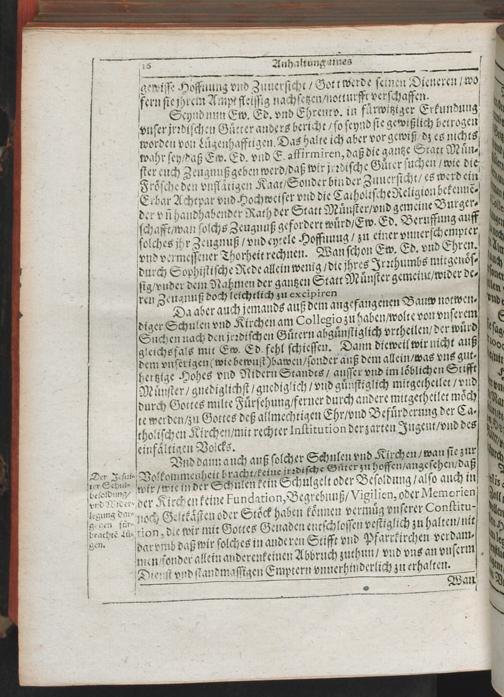 16
Anhaltung eines
gewisse Hoffnung vnd Zuuersicht / Gott werde seinen Dieneren / wo
fern sie jhrem Ampt fleissig nachsetzen / notturfft verschaffen.
Seynd nun Ew. Ed. vnd Ehrentv. in fürwitziger Erkundung
vnser jrdischen Gütter anders bericht / so seynd sie gewißlich betrogen
worden von Lügenhafftigen. Das halte ich aber vor gewiß / dz es nichts
wahr sey / daß Ew. Ed. vnd E. affirmiren, daß die gantze Statt Mün-
ster euch Zeugnuß geben werd / daß wir jrrdische Güter suchen / wie die
Frösche den vnflätigen Kaat / Sonder bin der Zuuersicht / es werd ein
Erbar Achtpar vnd Hochweiser vnd die Catholische Religion bekennē-
der vñ handhabender Rath der Statt Münster / vnd gemeine Burger-
schafft / wan solchs Zeugnuß gefordert würd / Ew. Ed. Beruffung auff
solches ihr Zeugnuß / vnd eytele Hoffnung / zu einer vnuerschempter
vnd vermessener Thorheit rechnen. Wan schon Ew. Ed. vnd Ehren.
durch Sophistische Rede allein wenig / die jhres Jrthumbs mitgenös-
sig / vnder dem Nahmen der gantzen Statt Münster gemeine / wider de-
ren Zeugnuß doch leichtlich zu excipiren
Da aber auch jemands auß dem angefangenen Bauw notwen-
diger Schulen vnd Kirchen am Collegio zu haben / wolte von vnserem
Suchen nach den jrdischen Gütern abgünstiglich vrtheilen / der würd
gleichsfals mit Ew. Ed. fehl schiessen. Dann dieweil wir nicht auß
dem vnserigen (wie bewust) bawen / sonder auß dem allein / was vns gut-
hertzige Hohes vnd Nidern Standes / ausser vnd im löblichen Stifft
Münster / gnediglichst / gnediglich / vnd günstiglich mitgetheilet / vnd
durch Gottes milte Fürsehung / ferner durch andere mitgetheilet möch
te werden / zu Gottes deß allmechtigen Ehr / vnd Befürderung der Ca-
tholischen Kirchen / mit rechter Institution der zarten Jugent / vnd des
einfältigen Volcks.
Vnd dann auch auß solcher Schulen vnd Kirchen / wan sie zur
Volkommenheit bracht / keine jrdische Güter zu hoffen / angesehen / daß
wir / wie in der Schulen kein Schulgelt oder Besoldung / also auch in
der Kirchen keine Fundation, Begrebnuß / Vigilien, oder Memorien
noch Geltkästen oder Stöck haben können vermüg vnserer Constitu-
tion, die wir mit Gottes Genaden entschlossen vestiglich zu halten / nit
darumb daß wir solches in anderen Stifft vnd Pfarrkirchen verdam-
men / sonder allein anderen keinen Abbruch zuthun / vnd vns an vnserm
Dienst vnd standmässigen Emptern vnuerhinderlich zu erhalten.
Wan
Der Jesui-
ter Schul-
besoldung /
vnd Wider-
legung dar-
gegen für-
brachte Lü-
gen.